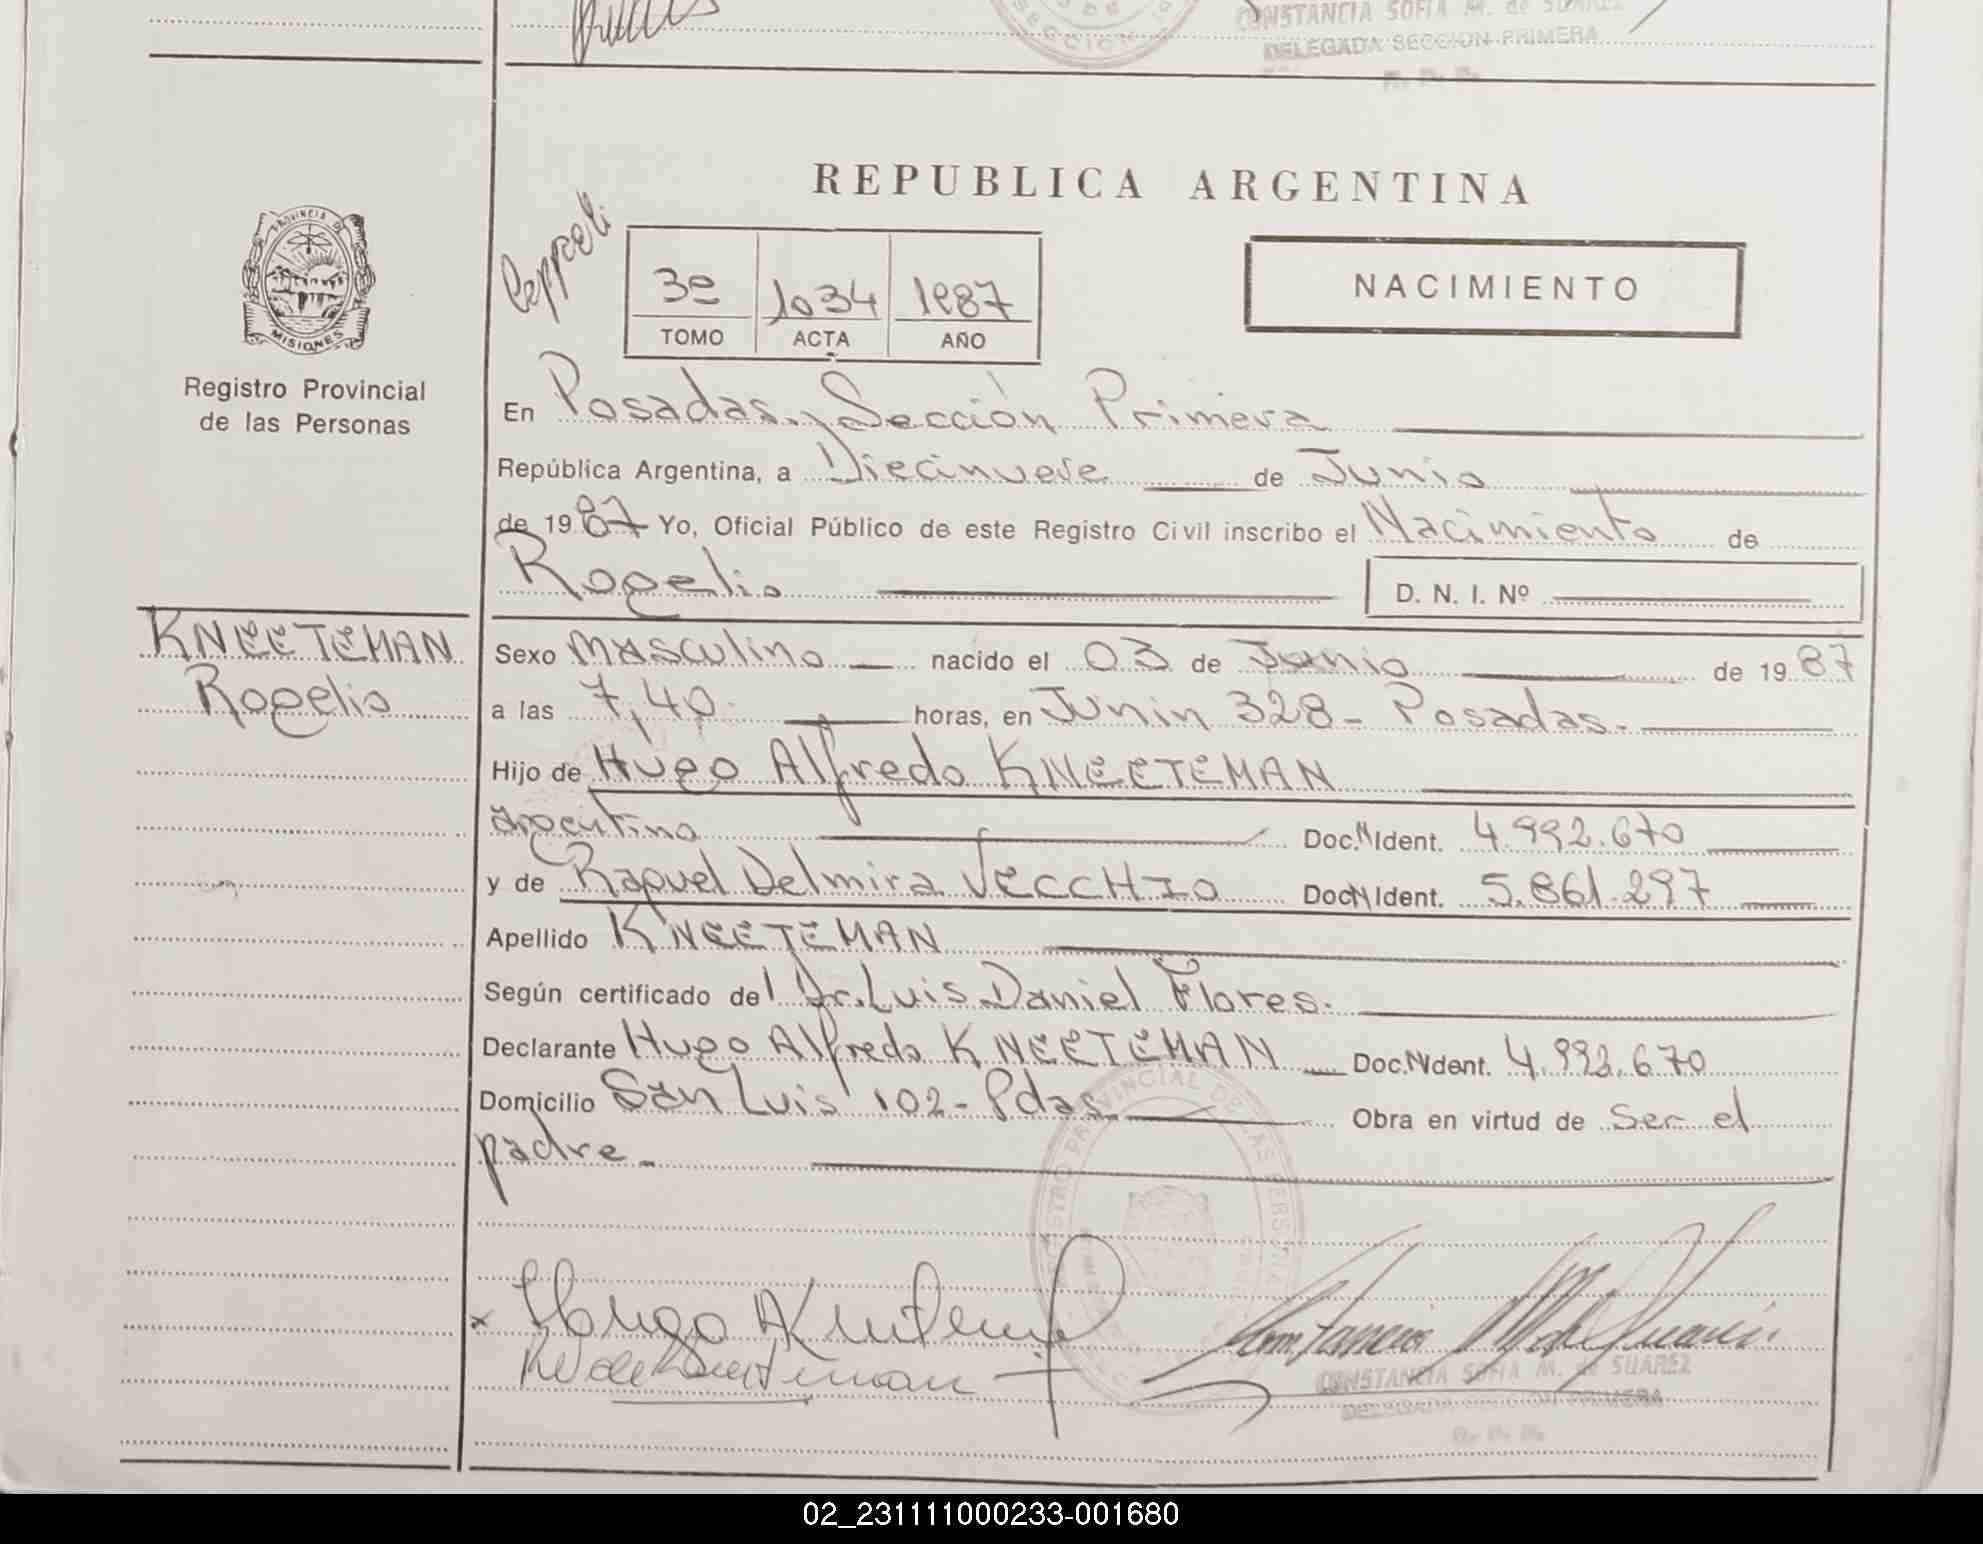 CONSTANCIA SOFIA M. de SUAREZ
DELEGADA SECCION PRIMERA
R. P. P.
REPUBLICA ARGENTINA
PROVINCIA DE
MISIONES
Registro Provincial
de las Personas
3º 1034 1987
TOMO ACTA AÑO
NACIMIENTO
En Posadas, Sección Primera
República Argentina, a Diecinueve de Junio
de 1987 Yo, Oficial Público de este Registro Civil inscribo el Nacimiento de
Rogelio
D. N. I. Nº
KNEETEMAN
Rogelio
Sexo masculino nacido el 03 de Junio de 1987
a las 7,40 horas, en Junin 328 - Posadas.
Hijo de Hugo Alfredo KNEETEMAN
Argentino Doc. N Ident. 4.992.670
y de Raquel Delmira VECCHIO Doc N Ident. 5.861.297
Apellido KNEETEMAN
Según certificado del Dr. Luis Daniel Flores.
Declarante Hugo Alfredo KNEETEMAN Doc. N Ident. 4.992.670
Domicilio San Luis 102 - Pdas. Obra en virtud de Ser el
padre -
CONSTANCIA SOFIA M. de SUAREZ
DELEGADA SECCION PRIMERA
R. P. P.
02_231111000233-001680